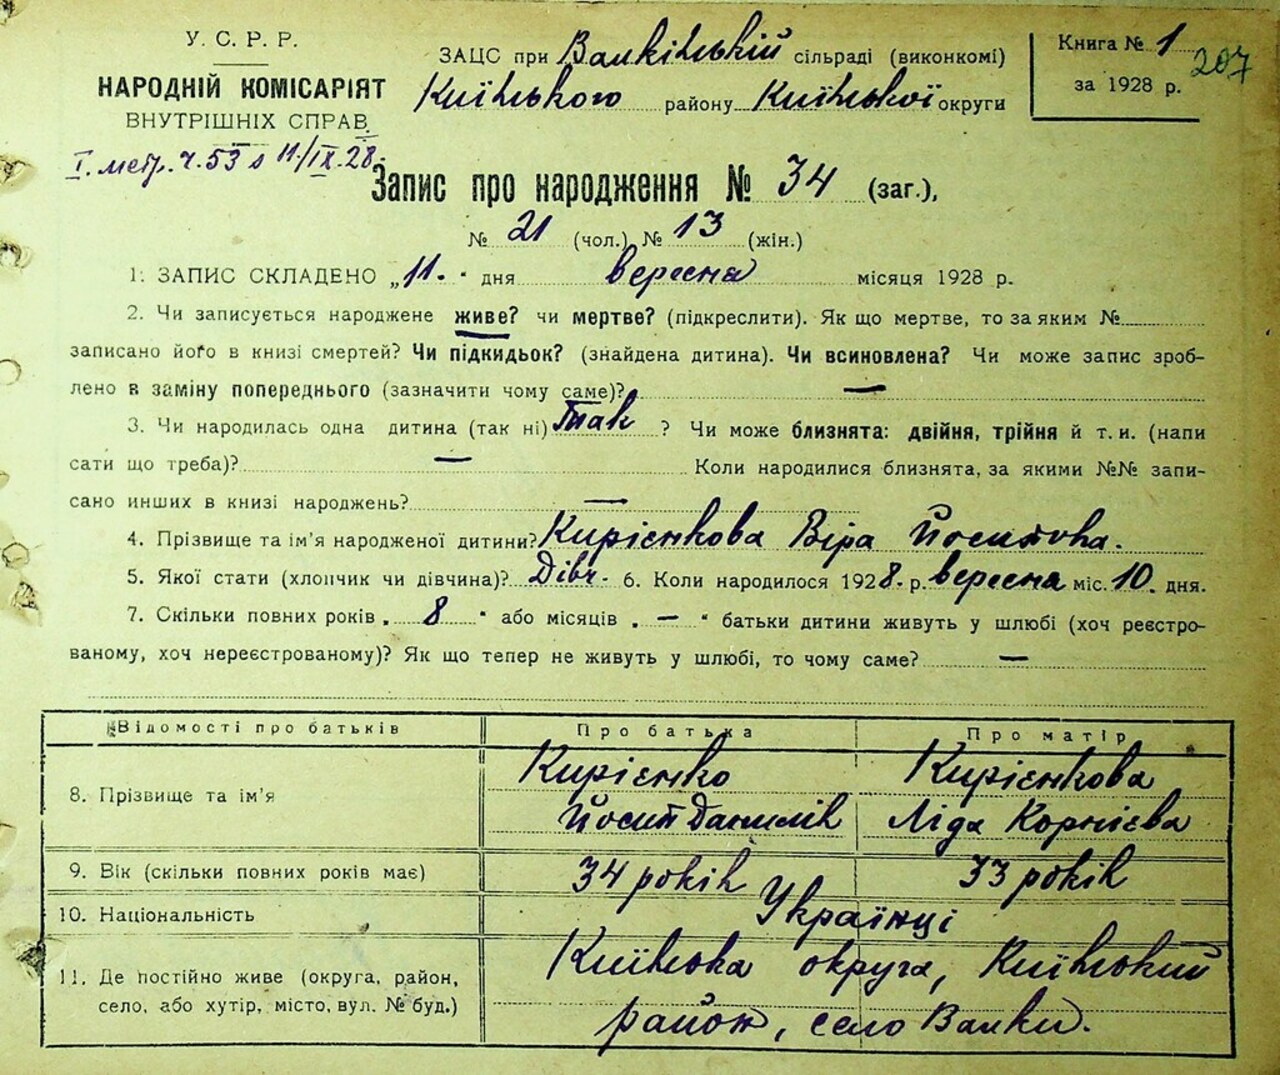 У. С. Р. Р.
НАРОДНІЙ КОМІСАРІЯТ
ВНУТРІШНІХ СПРАВ
ЗАЦС при Валківській сільраді (виконкомі)
Київського району Київської округи
Книга № 1
за 1928 р.
207
І. метр. ч. 53 з 11/IX-28.
Запис про народження № 34 (заг.),
№ 21 (чол.) № 13 (жін.)
1. ЗАПИС СКЛАДЕНО „11." дня вересня місяця 1928 р.
2. Чи записується народжене живе? чи мертве? (підкреслити). Як що мертве, то за яким №
записано його в книзі смертей? Чи підкидьок? (знайдена дитина). Чи всиновлена? Чи може запис зроб-
лено в заміну попереднього (зазначити чому саме)? —
3. Чи народилась одна дитина (так ні) Так ? Чи може близнята: двійня, трійня й т. и. (напи
сати що треба)? — Коли народилися близнята, за якими №№ запи-
сано инших в книзі народжень? —
4. Прізвище та ім'я народженої дитини? Кирієнкова Віра Йосиповна.
5. Якої стати (хлопчик чи дівчина)? Дівч. 6. Коли народилося 1928. р. вересня міс. 10. дня.
7. Скільки повних років „ 8 " або місяців „ — " батьки дитини живуть у шлюбі (хоч реєстро-
ваному, хоч нереєстрованому)? Як що тепер не живуть у шлюбі, то чому саме? —
Відомості про батьків Про батька Про матір
8. Прізвище та ім'я Кирієнко Йосип Данилів Кирієнкова Ліда Корнієва
9. Вік (скільки повних років має) 34 років 33 років
10. Національність Українці
11. Де постійно живе (округа, район, Київська округа, Київський
село, або хутір, місто, вул. № буд.) район, село Валки.